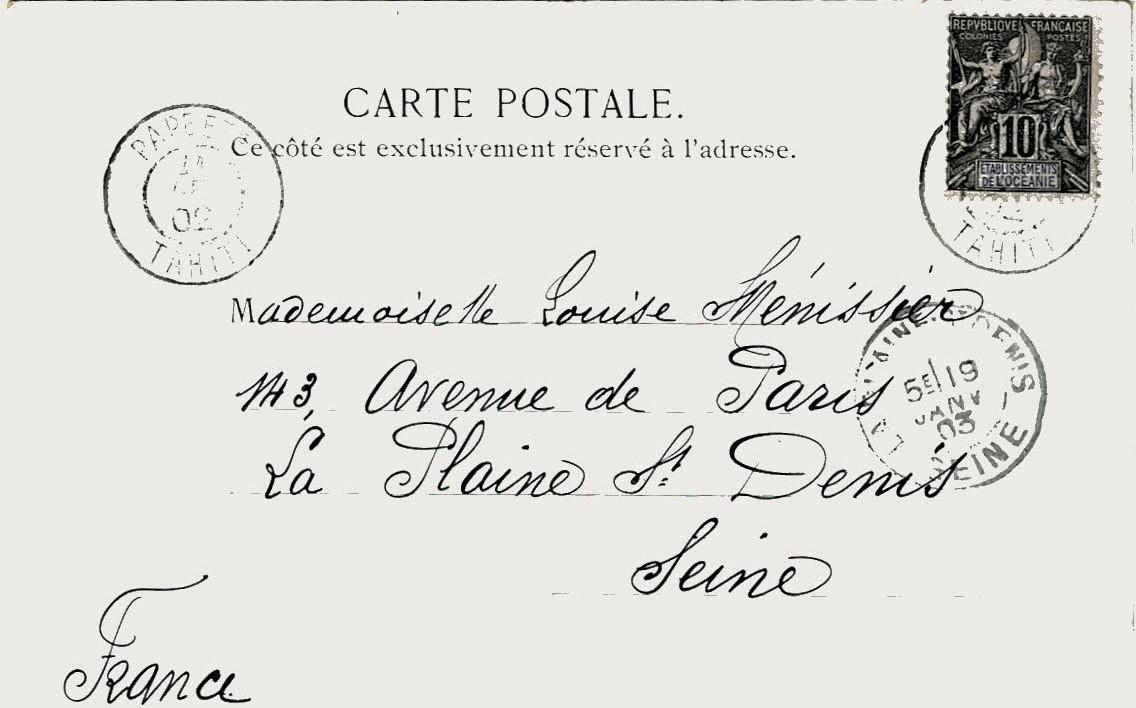 REPVBLIQVE FRANÇAISE
COLONIES POSTES
10
ETABLISSEMENTS
DE L'OCÉANIE
CARTE POSTALE.
Ce côté est exclusivement réservé à l'adresse.
PAPEETE
02
TAHITI
TAHITI
Mademoiselle Louise Ménissier
143, Avenue de Paris
La Plaine St Denis
Seine
France
LA PLAINE ST DENIS
5E/19
JANV
03
SEINE